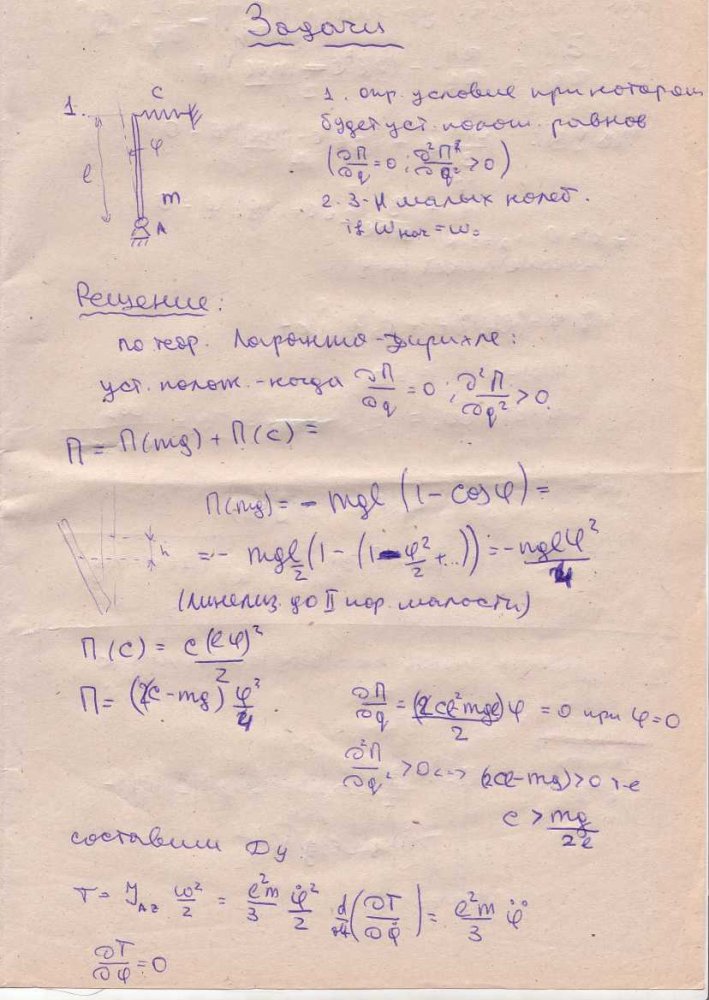 Задачи
1.
c
φ
l
m
A
1. опр. условие при котором
будет уст. полож. равнов
(∂П/∂q = 0 ; ∂²П/∂q² > 0)
2. З-н малых колеб.
if ω нач = ω₀
Решение:
по теор. Лагранжа-Дирихле:
уст. полож. - когда ∂П/∂q = 0 ; ∂²П/∂q² > 0
П = П(mg) + П(c) =
П(mg) = - mgl (1 - cosφ) =
= - mg l/2 (1 - (1 - φ²/2 + ...)) = - mglφ²/4
h
(линелиз. до II пор. малости)
П(c) = c(lφ)²/2
П = (2c - mg) φ²/4
∂П/∂q = (2cl² mgl)φ/2 = 0 при φ = 0
∂²П/∂q² > 0 <-> (2cl - mg) > 0 т-е
c > mg/2l
составим Ду
T = J_Az ω²/2 = l²m/3 φ̇²/2 d/dt(∂T/∂φ̇) = l²m/3 φ̈
∂T/∂φ = 0